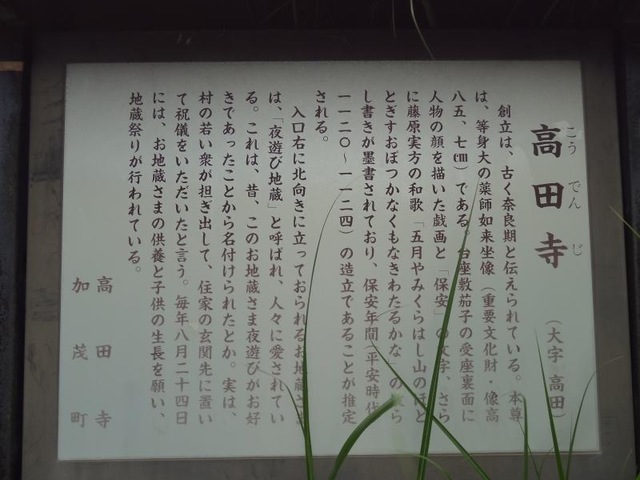 高田寺
こうでんじ
（大字・高田）
創立は、古く奈良期と伝えられている。本尊
は、等身大の薬師如来坐像（重要文化財・像高
八五、七㎝）である。台座敷茄子の受座裏面に
人物の顔を描いた戯画と「保安」の文字、さら
に藤原実方の和歌「五月やみくらはし山のほと
とぎすおぼつかなくもなきわたるかな」のくら
し書きが墨書されており、保安年間（平安時代
一一二〇〜一一二四）の造立であることが推定
される。
入口右に北向きに立っておられるお地蔵さま
は、「夜遊び地蔵」と呼ばれ、人々に愛されてい
る。これは、昔、このお地蔵さま夜遊びがお好
きであったことから名付けられたとか。実は、
村の若い衆が担ぎ出して、住家の玄関先に置い
て祝儀をいただいたと言う。毎年八月二十四日
には、お地蔵さまの供養と子供の生長を願い、
地蔵祭りが行われている。
高田寺
加茂町